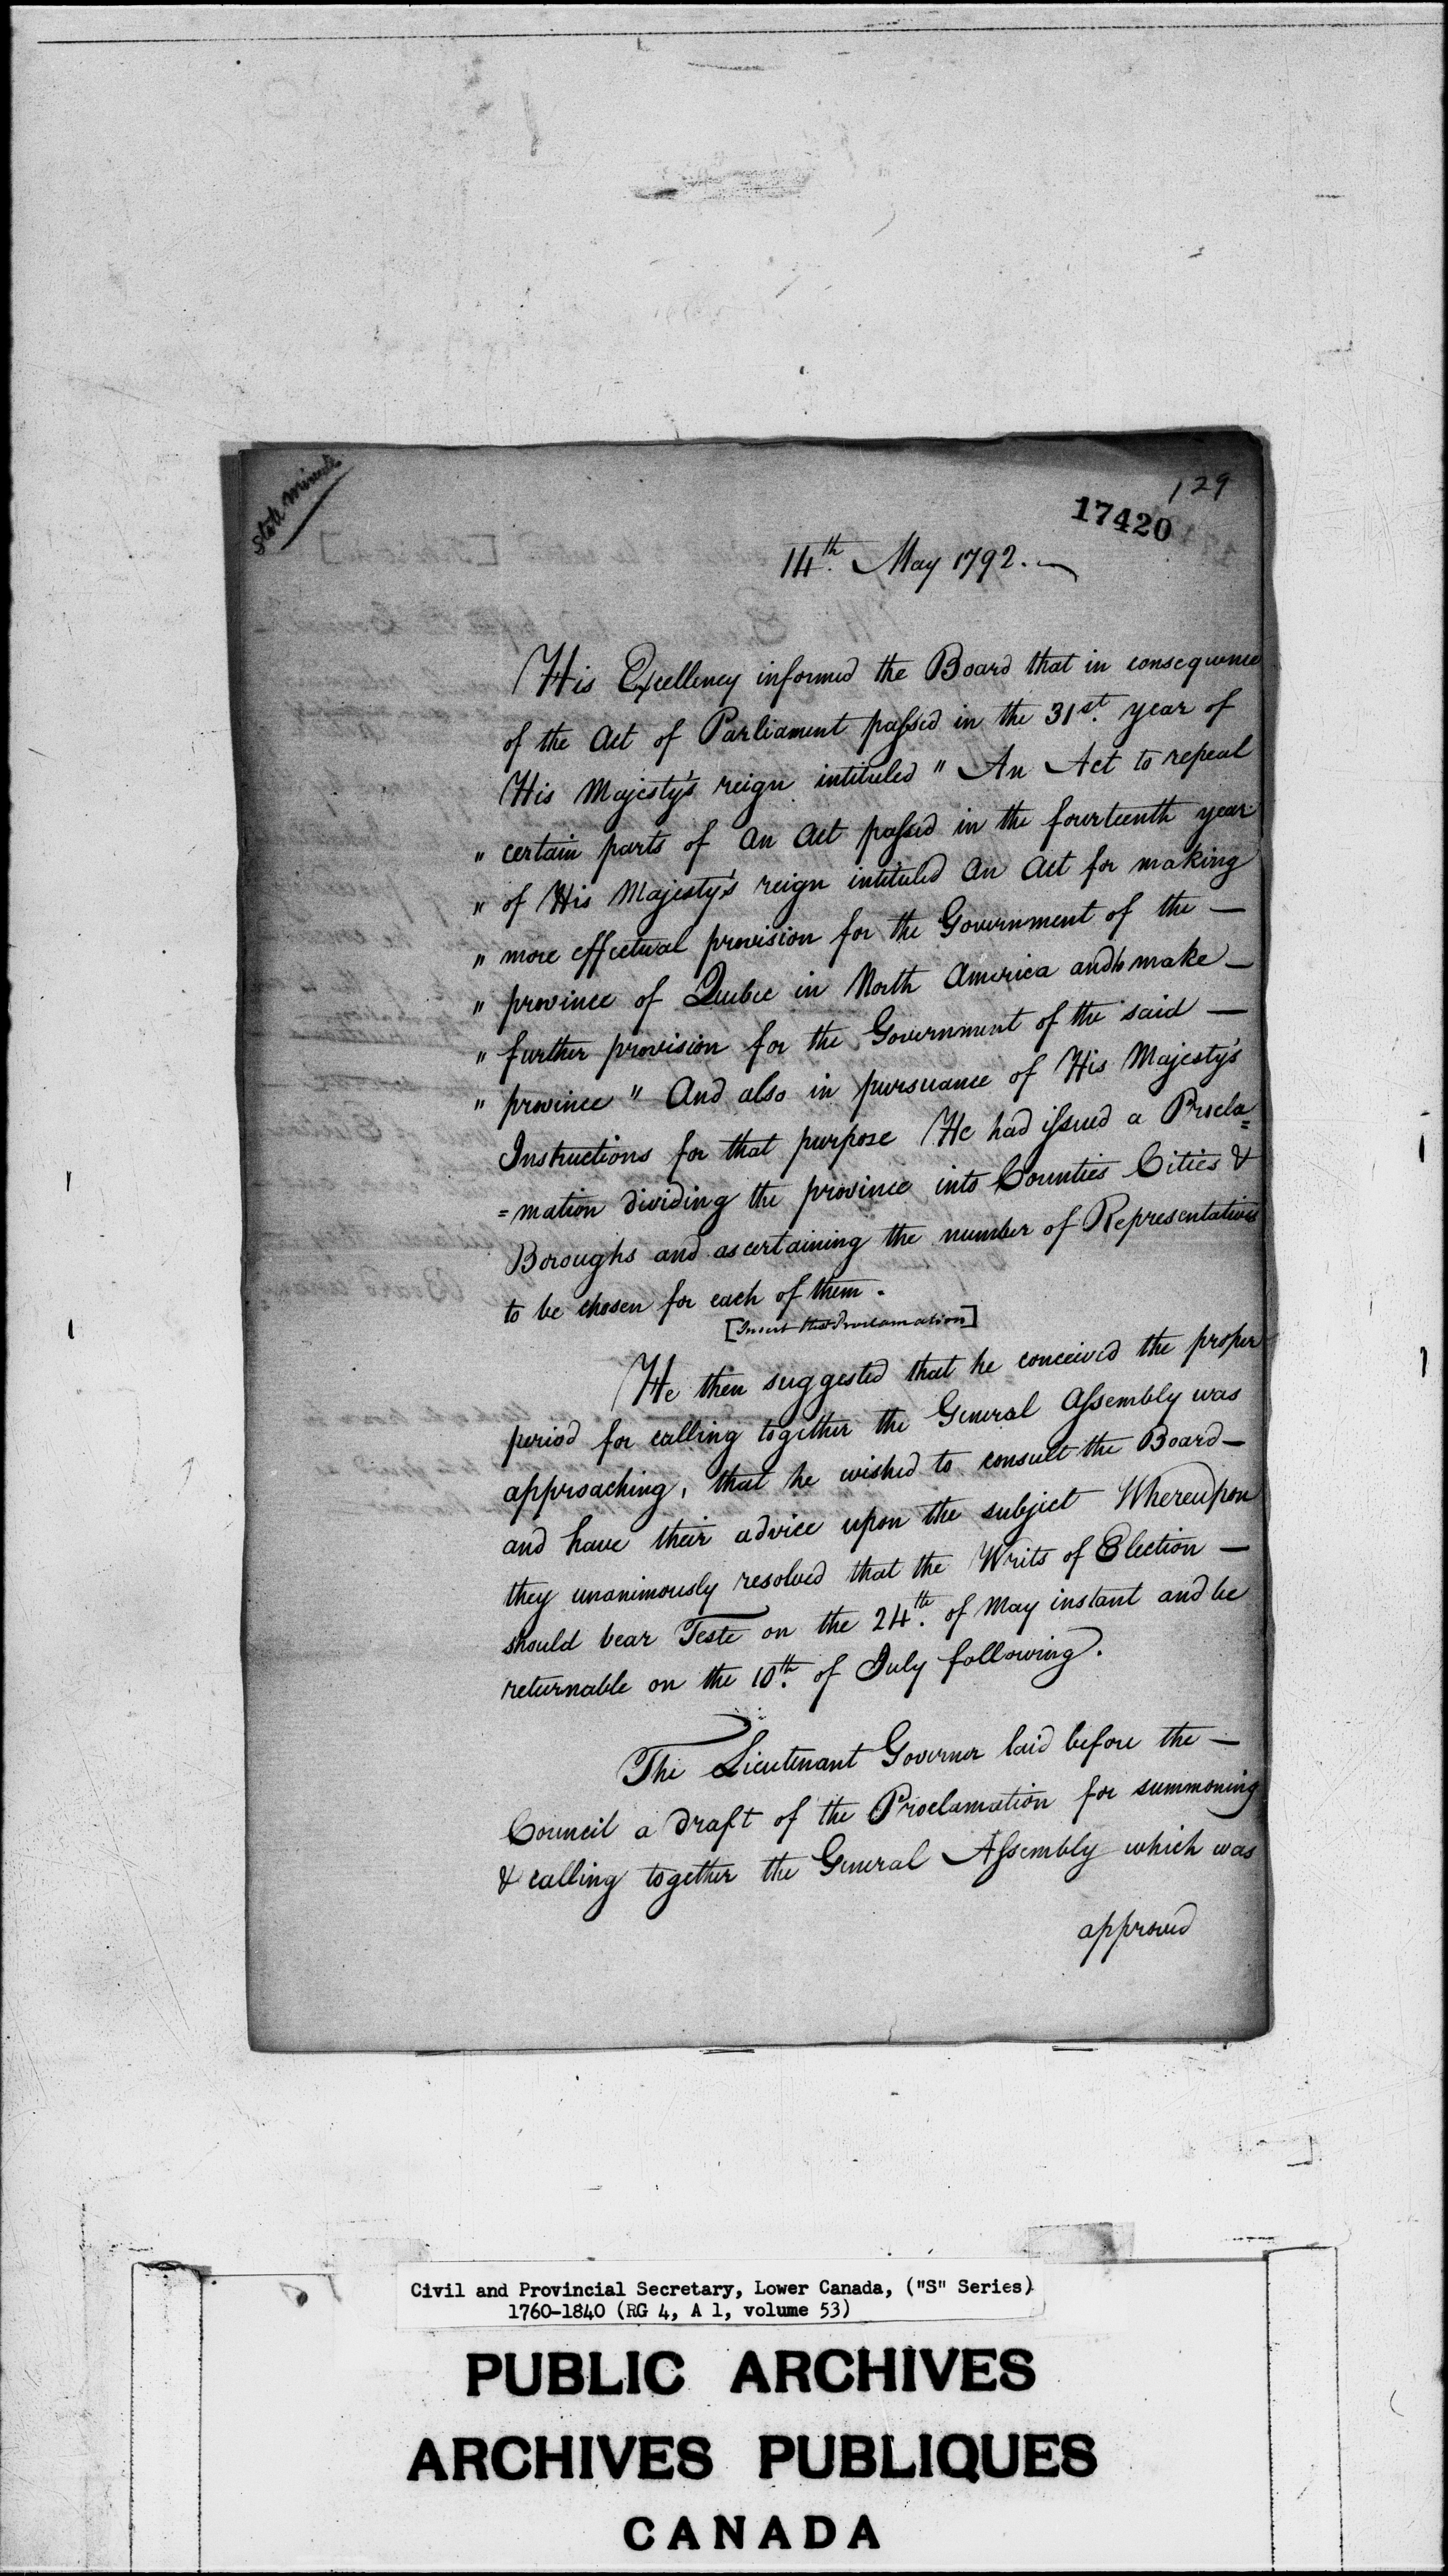 State minute
129
17420
14th. May 1792.
His Excellency informed the Board that in consequence
of the Act of Parliament passed in the 31st. year of
His Majesty's reign intituled " An Act to repeal
" certain parts of an Act passed in the fourteenth year
" of His Majesty's reign intituled an Act for making
" more effectual provision for the Government of the —
" province of Quebec in North America and to make —
" further provision for the Government of the said —
" province " And also in pursuance of His Majesty's
Instructions for that purpose He had issued a Procla=
=mation dividing the province into Counties Cities &
Boroughs and ascertaining the number of Representatives
to be chosen for each of them.
[Insert that Proclamation]
He then suggested that he conceived the proper
period for calling together the General Assembly was
approaching, that he wished to consult the Board —
and have their advice upon the subject Whereupon
they unanimously resolved that the Writs of Election —
should bear Teste on the 24th. of May instant and be
returnable on the 10th. of July following.
The Lieutenant Governor laid before the —
Council a draft of the Proclamation for summoning
& calling together the General Assembly which was
approved
Civil and Provincial Secretary, Lower Canada, ("S" Series)
1760-1840 (RG 4, A 1, volume 53)
PUBLIC ARCHIVES
ARCHIVES PUBLIQUES
CANADA